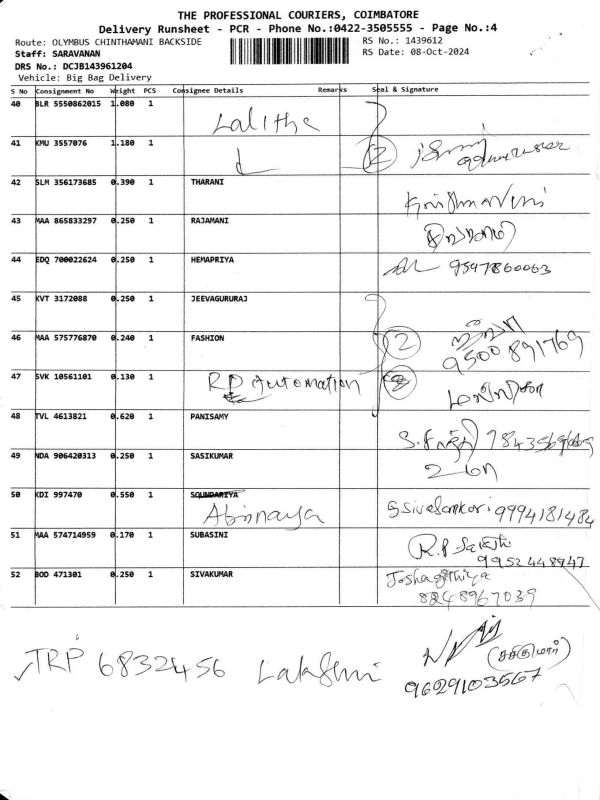 THE PROFESSIONAL COURIERS, COIMBATORE
Delivery Runsheet - PCR - Phone No.:0422-3505555 - Page No.:4
Route: OLYMBUS CHINTHAMANI BACKSIDE
RS No.: 1439612
Staff: SARAVANAN
RS Date: 08-Oct-2024
DRS No.: DCJB143961204
Vehicle: Big Bag Delivery
S No Consignment No Weight PCS Consignee Details Remarks Seal & Signature
40 BLR 5550862015 1.080 1 Lalitha
41 KMU 3557076 1.180 1 2
42 SLM 356173685 0.390 1 THARANI
43 MAA 865833297 0.250 1 RAJAMANI
44 EDQ 700022624 0.250 1 HEMAPRIYA 9597860063
45 KVT 3172088 0.250 1 JEEVAGURURAJ
46 MAA 575776870 0.240 1 FASHION 2 9500891769
47 SVK 10561101 0.130 1 RD Automation
48 TVL 4613821 0.620 1 PANISAMY
49 NDA 906420313 0.250 1 SASIKUMAR
50 KDI 997470 0.550 1 SOUNDARIYA
Abinaya G Sivasankari 9994181484
51 MAA 574714959 0.170 1 SUBASINI R.P Sakthi
9952448947
52 BOD 471301 0.250 1 SIVAKUMAR
8248967039
TRP 6832456 Lakshmi
9629103567